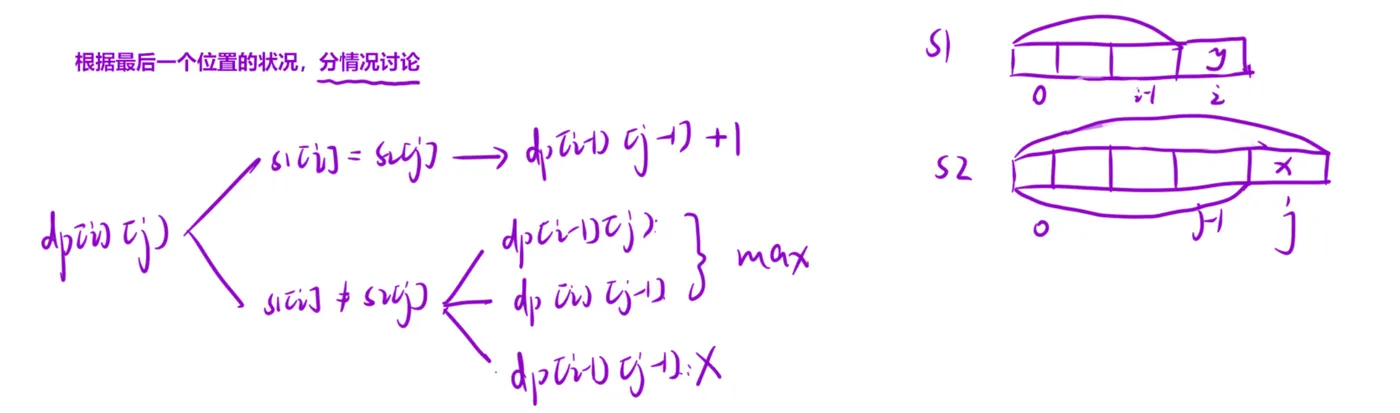 根据最后一个位置的状况，分情况讨论
s1[i] = s2[j] → dp[i-1][j-1] + 1
dp[i][j]
s1[i] ≠ s2[j]
dp[i-1][j]
dp[i][j-1]
max
dp[i-1][j-1]: X
S1
y
0 i-1 i
S2
x
0 j-1 j